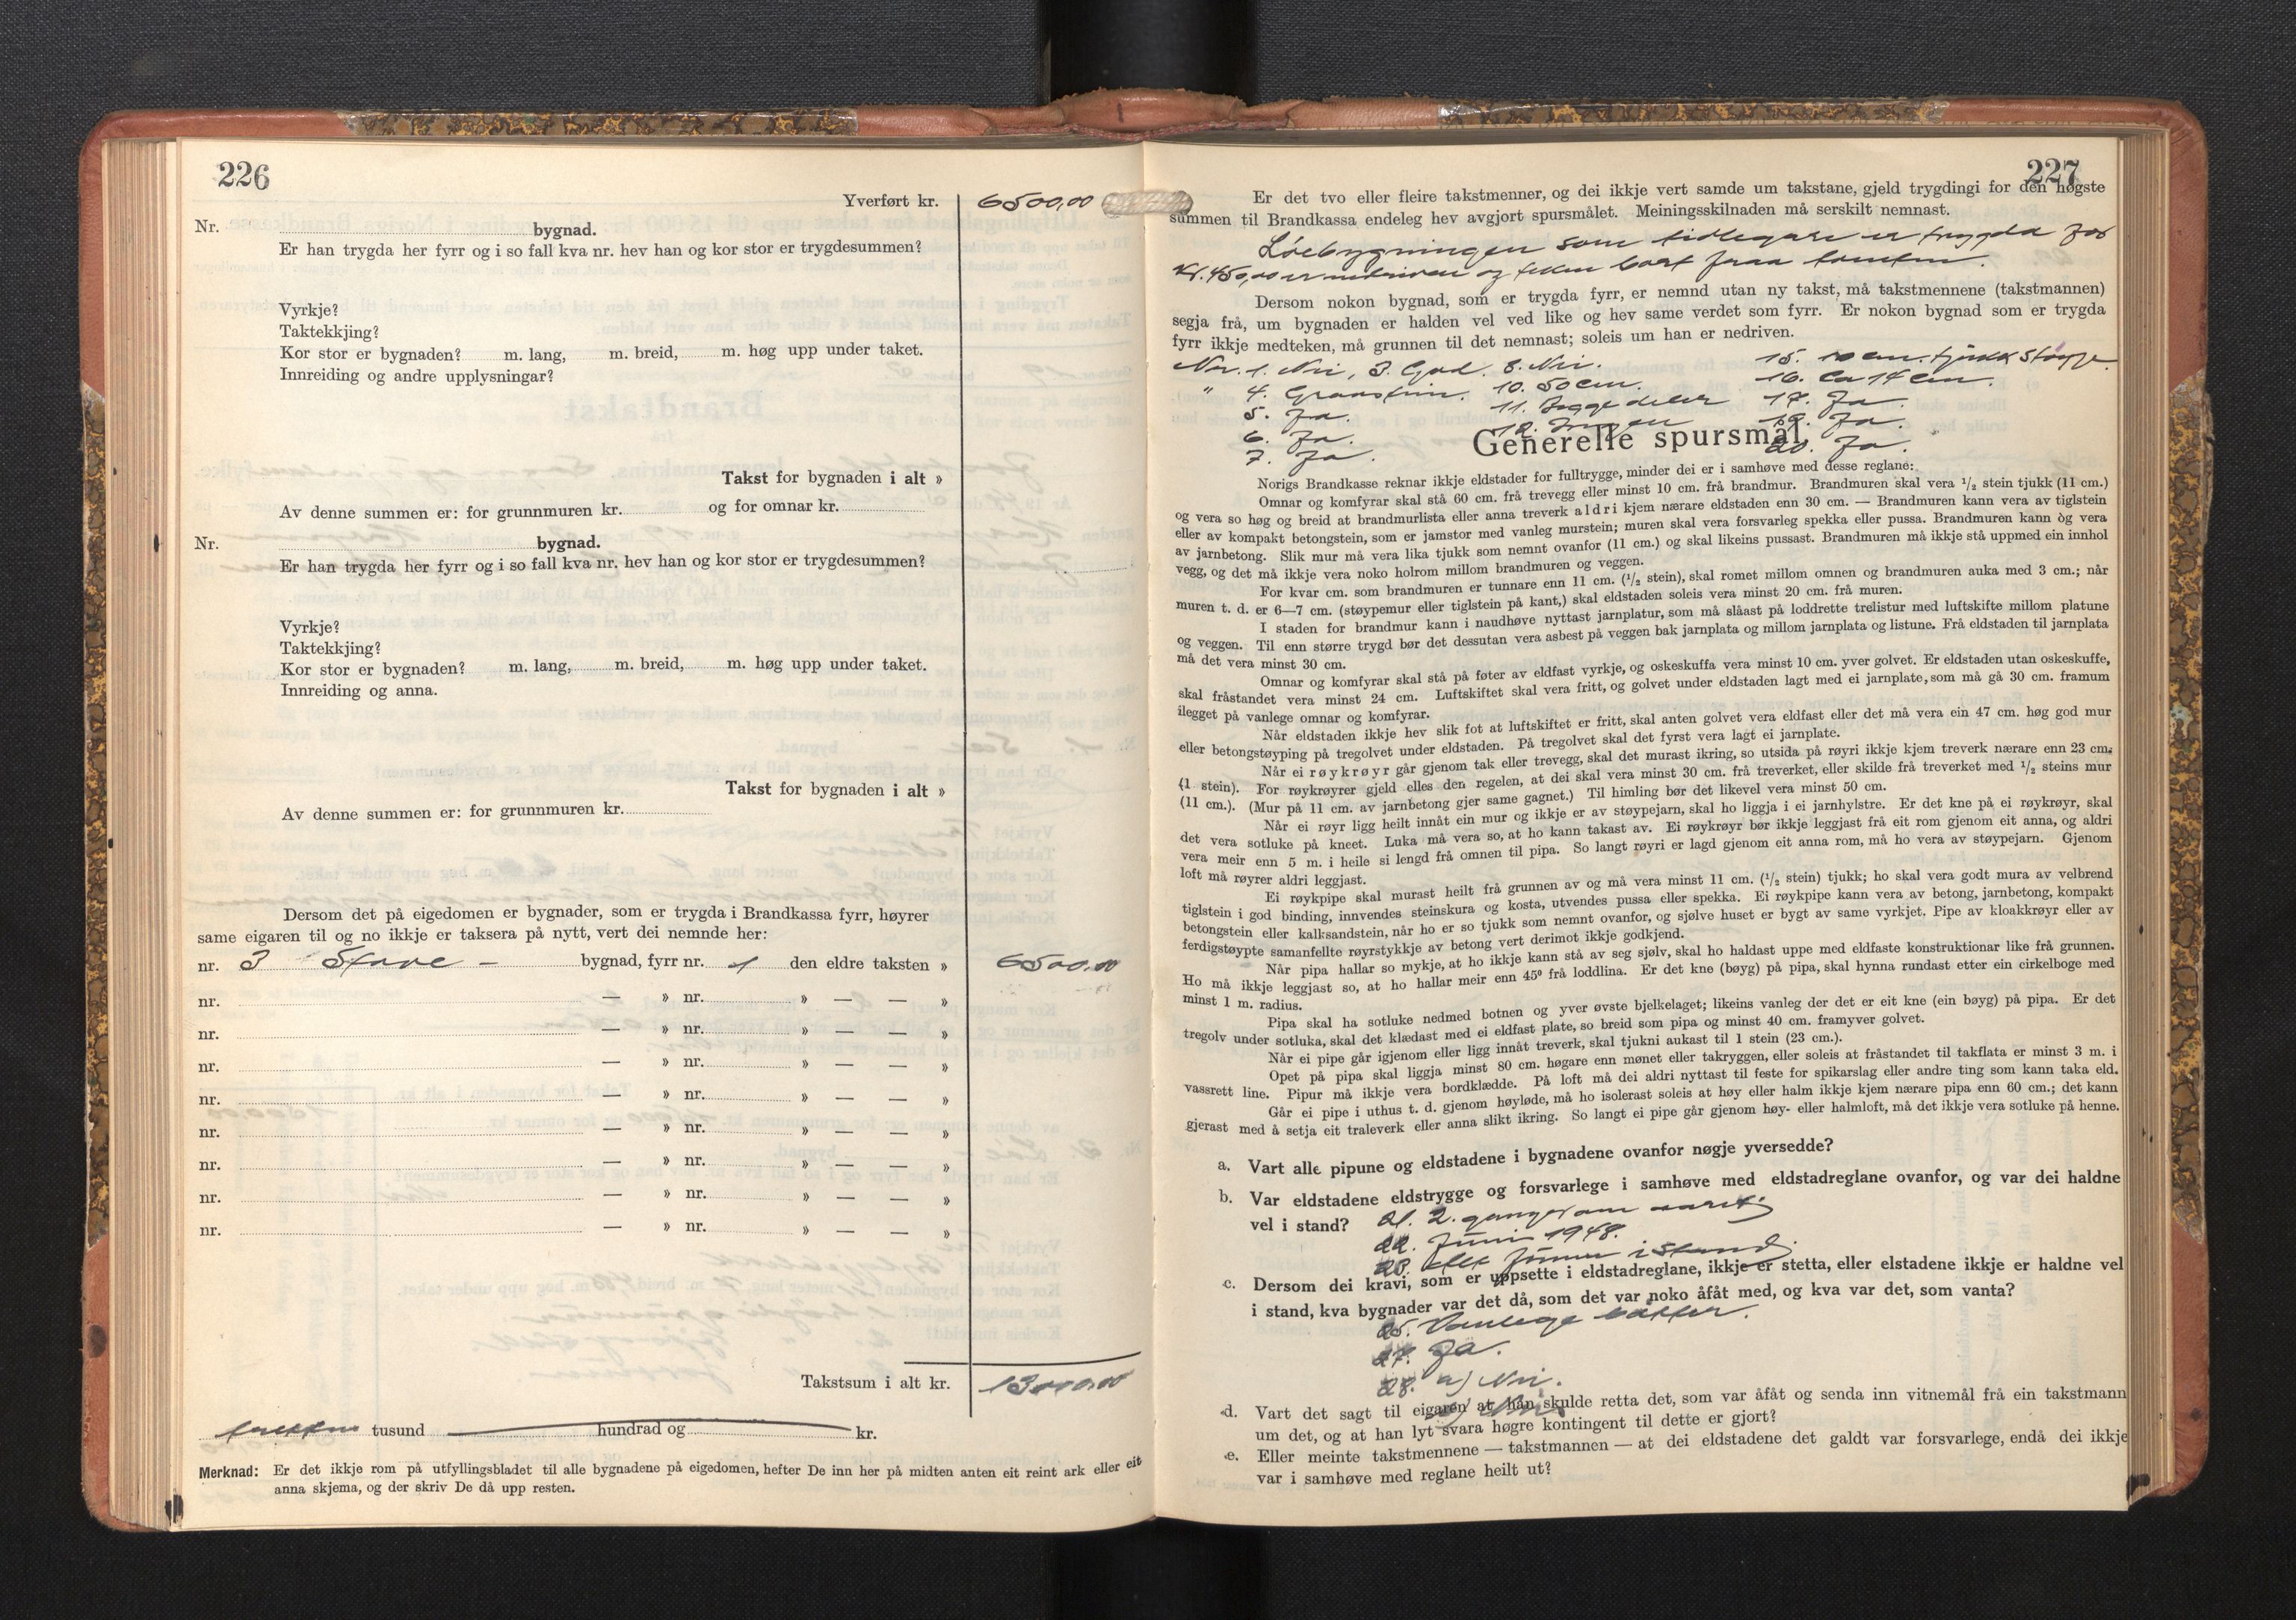 226
Yverført kr. 6500,00
Nr. bygnad.
Er han trygda her fyrr og i so fall kva nr. hev han og kor stor er trygdesummen?
Vyrkje?
Taktekkjing?
Kor stor er bygnaden? m. lang, m. breid, m. høg upp under taket.
Innreiding og andre upplysningar?
Takst for bygnaden i alt »
Av denne summen er: for grunnmuren kr. og for omnar kr.
Nr. bygnad.
Er han trygda her fyrr og i so fall kva nr. hev han og kor stor er trygdesummen?
Vyrkje?
Taktekkjing?
Kor stor er bygnaden? m. lang, m. breid, m. høg upp under taket.
Innreiding og anna.
Takst for bygnaden i alt »
Av denne summen er: for grunnmuren kr.
Dersom det på eigedomen er bygnader, som er trygda i Brandkassa fyrr, høyrer
same eigaren til og no ikkje er taksera på nytt, vert dei nemnde her:
nr. 3 Stove – bygnad, fyrr nr. 1 den eldre taksten » 6500,00
nr. — » nr. » — — »
nr. — » nr. » — — »
nr. — » nr. » — — »
nr. — » nr. » — — »
nr. — » nr. » — — »
nr. — » nr. » — — »
nr. — » nr. » — — »
nr. — » nr. » — — »
Takstsum i alt kr. 13000,00
trettan tusund hundrad og kr.
Merknad: Er det ikkje rom på utfyllingsbladet til alle bygnadene på eigedomen, hefter De inn her på midten anten eit reint ark eller eit
anna skjema, og der skriv De då upp resten.
227
Er det tvo eller fleire takstmenner, og dei ikkje vert samde um takstane, gjeld trygdingi for den høgste
summen til Brandkassa endeleg hev avgjort spursmålet. Meiningsskilnaden må serskilt nemnast.
Løebygningen som tidlegare er trygda for
Kr. 450,00 er nedriven og teken bort fraa tomten.
Dersom nokon bygnad, som er trygda fyrr, er nemnd utan ny takst, må takstmennene (takstmannen)
segja frå, um bygnaden er halden vel ved like og hev same verdet som fyrr. Er nokon bygnad som er trygda
fyrr ikkje medteken, må grunnen til det nemnast; soleis um han er nedriven.
Nr. 1. Nei, 3. God. 8. Nei. 15. 10 cm. tjukk støype.
" 4. Graastein. 10. 50 cm. 16. Ca 14 cm.
5. Ja. 11. Begge deler 17. Ja.
6. Ja. 12. Ingen 19. Ja.
7. Ja. 20. Ja.
Generelle spursmål.
Norigs Brandkasse reknar ikkje eldstader for fulltrygge, minder dei er i samhøve med desse reglane:
Omnar og komfyrar skal stå 60 cm. frå trevegg eller minst 10 cm. frå brandmur. Brandmuren skal vera 1/2 stein tjukk (11 cm.)
og vera so høg og breid at brandmurlista eller anna treverk aldri kjem nærare eldstaden enn 30 cm. — Brandmuren kann vera av tiglstein
eller av kompakt betongstein, som er jamstor med vanleg murstein; muren skal vera forsvarleg spekka eller pussa. Brandmuren kann òg vera
av jarnbetong. Slik mur må vera lika tjukk som nemnt ovanfor (11 cm.) og skal likeins pussast. Brandmuren må ikkje stå uppmed ein innhol
vegg, og det må ikkje vera noko holrom millom brandmuren og veggen.
For kvar cm. som brandmuren er tunnare enn 11 cm. (1/2 stein), skal romet millom omnen og brandmuren auka med 3 cm.; når
muren t. d. er 6—7 cm. (støypemur eller tiglstein på kant,) skal eldstaden soleis vera minst 20 cm. frå muren.
I staden for brandmur kann i naudhøve nyttast jarnplatur, som må slåast på loddrette trelistur med luftskifte millom platune
og veggen. Til enn større trygd bør det dessutan vera asbest på veggen bak jarnplata og millom jarnplata og listune. Frå eldstaden til jarnplata
må det vera minst 30 cm.
Omnar og komfyrar skal stå på føter av eldfast vyrkje, og oskeskuffa vera minst 10 cm. yver golvet. Er eldstaden utan oskeskuffe,
skal fråstandet vera minst 24 cm. Luftskiftet skal vera fritt, og golvet under eldstaden lagt med ei jarnplate, som må gå 30 cm. framum
ilegget på vanlege omnar og komfyrar.
Når eldstaden ikkje hev slik fot at luftskiftet er fritt, skal anten golvet vera eldfast eller det må vera ein 47 cm. høg god mur
eller betongstøyping på tregolvet under eldstaden. På tregolvet skal det fyrst vera lagt ei jarnplate.
Når ei røykrøyr går gjenom tak eller trevegg, skal det murast ikring, so utsida på røyri ikkje kjem treverk nærare enn 23 cm.
(1 stein). For røykrøyrer gjeld elles den regelen, at dei skal vera minst 30 cm. frå treverket, eller skilde frå treverket med 1/2 steins mur
(11 cm.). (Mur på 11 cm. av jarnbetong gjer same gagnet.) Til himling bør det likevel vera minst 50 cm.
Når ei røyr ligg heilt innåt ein mur og ikkje er av støypejarn, skal ho liggja i ei jarnhylstre. Er det kne på ei røykrøyr, skal
det vera sotluke på kneet. Luka må vera so, at ho kann takast av. Ei røykrøyr bør ikkje leggjast frå eit rom gjenom eit anna, og aldri
vera meir enn 5 m. i heile si lengd frå omnen til pipa. So langt røyri er lagd gjenom eit anna rom, må ho vera av støypejarn. Gjenom
loft må røyrer aldri leggjast.
Ei røykpipe skal murast heilt frå grunnen av og må vera minst 11 cm. (1/2 stein) tjukk; ho skal vera godt mura av velbrend
tiglstein i god binding, innvendes steinskura og kosta, utvendes pussa eller spekka. Ei røykpipe kann vera av betong, jarnbetong, kompakt
betongstein eller kalksandstein, når ho er so tjukk som nemnt ovanfor, og sjølve huset er bygt av same vyrkjet. Pipe av kloakkrøyr eller av
ferdigstøypte samanfellte røyrstykkje av betong vert derimot ikkje godkjend.
Når pipa hallar so mykje, at ho ikkje kann stå av seg sjølv, skal ho haldast uppe med eldfaste konstruktionar like frå grunnen.
Ho må ikkje leggjast so, at ho hallar meir enn 45° frå loddlina. Er det kne (bøyg) på pipa, skal hynna rundast etter ein cirkelboge med
minst 1 m. radius.
Pipa skal ha sotluke nedmed botnen og yver øvste bjelkelaget; likeins vanleg der det er eit kne (ein bøyg) på pipa. Er det
tregolv under sotluka, skal det klædast med ei eldfast plate, so breid som pipa og minst 40 cm. framyver golvet.
Når ei pipe går igjenom eller ligg innåt treverk, skal tjukni aukast til 1 stein (23 cm.).
Opet på pipa skal liggja minst 80 cm. høgare enn mønet eller takryggen, eller soleis at fråstandet til takflata er minst 3 m. i
vassrett line. Pipur må ikkje vera bordklædde. På loft må dei aldri nyttast til feste for spikarslag eller andre ting som kann taka eld.
Går ei pipe i uthus t. d. gjenom høyløde, må ho isolerast soleis at høy eller halm ikkje kjem nærare pipa enn 60 cm.; det kann
gjerast med å setja eit traleverk eller anna slikt ikring. So langt ei pipe går gjenom høy- eller halmloft, må det ikkje vera sotluke på henne.
a. Vart alle pipune og eldstadene i bygnadene ovanfor nøgje yversedde?
b. Var eldstadene eldstrygge og forsvarlege i samhøve med eldstadreglane ovanfor, og var dei haldne
vel i stand? 21. 2. ganger om aaret;
22. Juni 1948.
23. Alt finnes i stand;
c. Dersom dei kravi, som er uppsette i eldstadreglane, ikkje er stetta, eller elstadene ikkje er haldne vel
i stand, kva bygnader var det då, som det var noko åfåt med, og kva var det, som vanta?
25. Vanlege bøtter.
27. Ja.
28. a) Nei.
d. Vart det sagt til eigaren at han skulde retta det, som var åfåt og senda inn vitnemål frå ein takstmann
um det, og at han lyt svara høgre kontingent til dette er gjort?
e. Eller meinte takstmennene — takstmannen — at dei eldstadene det galdt var forsvarlege, endå dei ikkje
var i samhøve med reglane heilt ut?